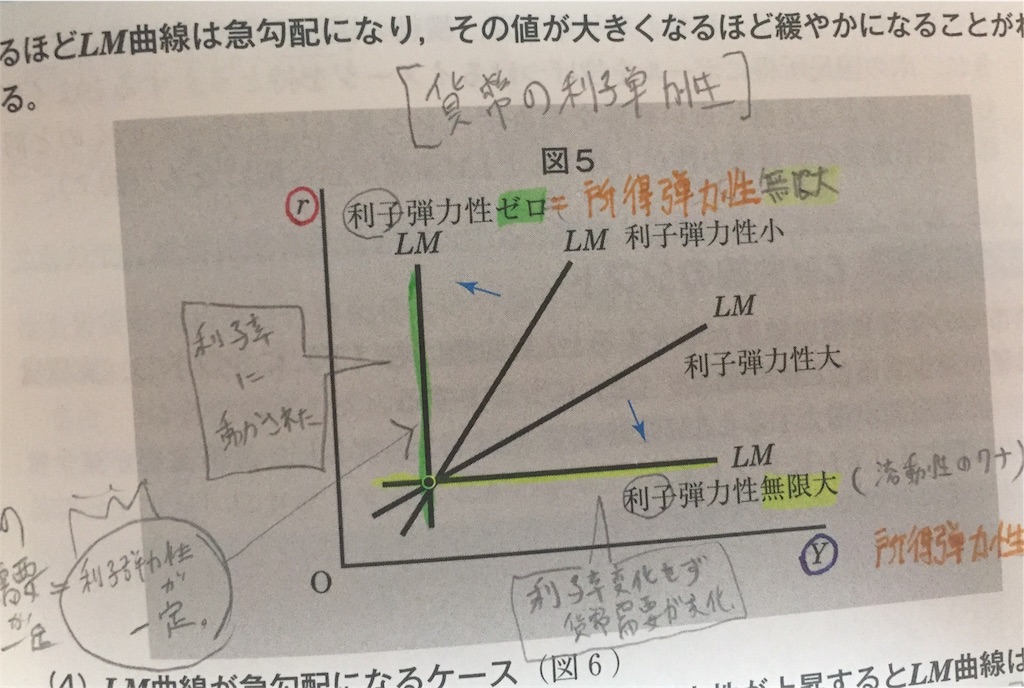 るほどLM曲線は急勾配になり，その値が大きくなるほど緩やかになることが
る。
[貨幣の利子弾力性]
図5
r
利子弾力性ゼロ=所得弾力性無限大
LM
LM 利子弾力性小
LM
利子弾力性大
利子率
に
動かされた
LM
利子弾力性無限大(流動性のワナ)
Y
所得弾力性
O
の
需要
が
一定
=
利子弾力性
が
一定。
利子率変化せず
貨幣需要が変化.
(4) LM曲線が急勾配になるケース（図6）
が上昇するとLM曲線は